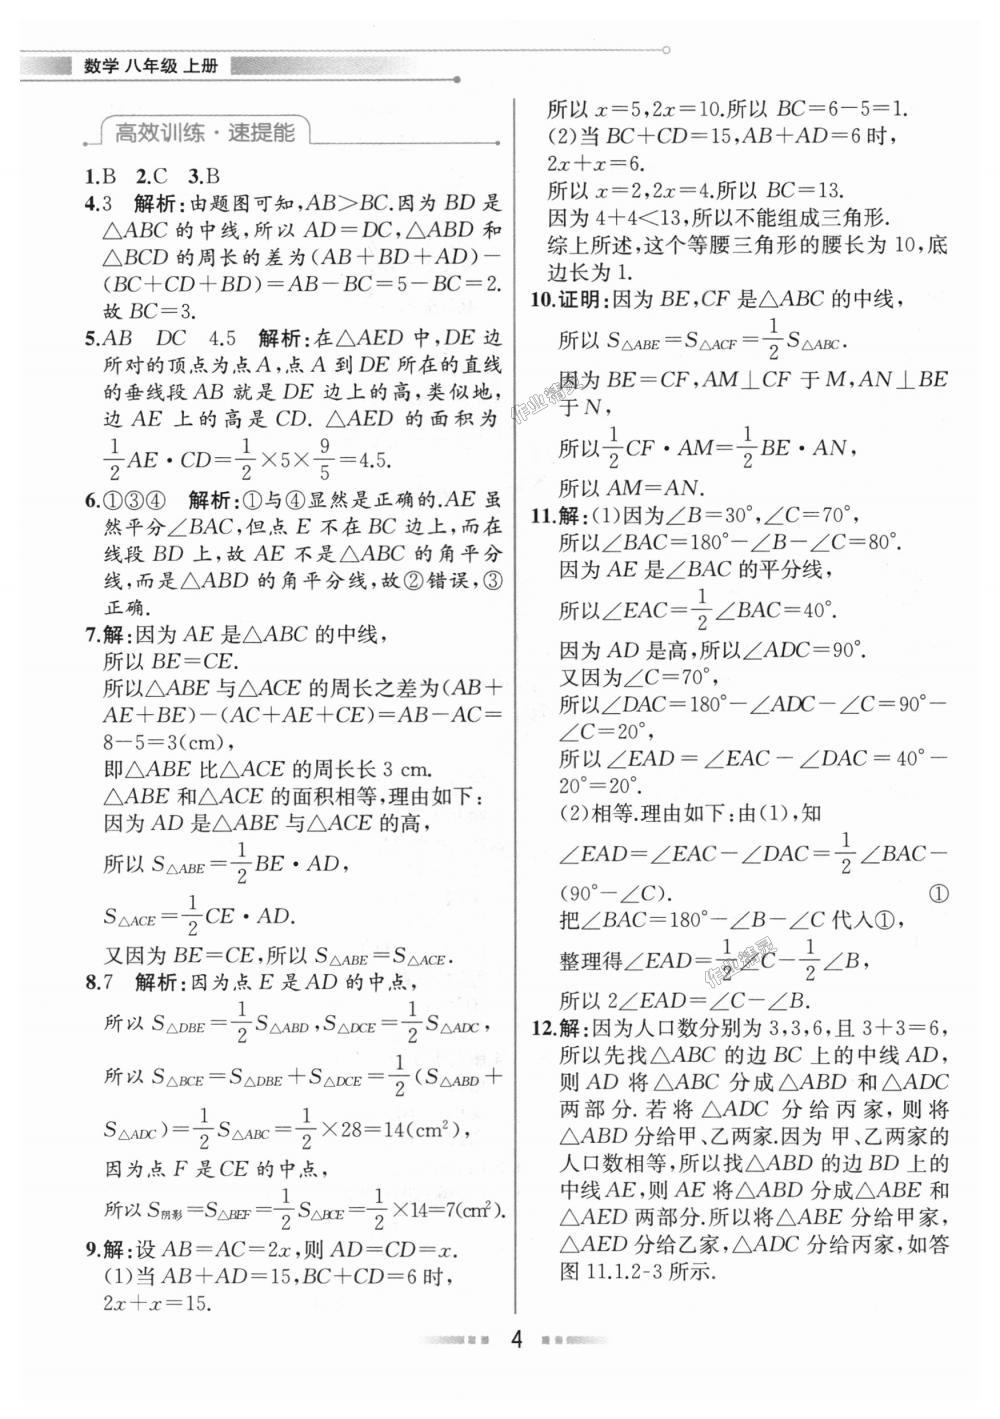 数学 八年级 上册
高效训练·速提能
1.B 2.C 3.B
4.3 解析:由题图可知,AB>BC.因为 BD 是
△ABC 的中线,所以 AD=DC,△ABD 和
△BCD 的周长的差为(AB+BD+AD)-
(BC+CD+BD)=AB-BC=5-BC=2.
故 BC=3.
5.AB DC 4.5 解析:在△AED 中,DE 边
所对的顶点为点 A,点 A 到 DE 所在的直线
的垂线段 AB 就是 DE 边上的高,类似地,
边 AE 上的高是 CD. △AED 的面积为
1/2 AE·CD=1/2×5×9/5=4.5.
6.①③④ 解析:①与④显然是正确的.AE 虽
然平分∠BAC,但点 E 不在 BC 边上,而在
线段 BD 上,故 AE 不是△ABC 的角平分
线,而是△ABD 的角平分线,故②错误,③
正确.
7.解:因为 AE 是△ABC 的中线,
所以 BE=CE.
所以△ABE 与△ACE 的周长之差为(AB+
AE+BE)-(AC+AE+CE)=AB-AC=
8-5=3(cm),
即△ABE 比△ACE 的周长长 3 cm.
△ABE 和△ACE 的面积相等,理由如下:
因为 AD 是△ABE 与△ACE 的高,
所以 S△ABE=1/2 BE·AD,
S△ACE=1/2 CE·AD.
又因为 BE=CE,所以 S△ABE=S△ACE.
8.7 解析:因为点 E 是 AD 的中点,
所以 S△DBE=1/2 S△ABD,S△DCE=1/2 S△ADC,
所以 S△BCE=S△DBE+S△DCE=1/2(S△ABD+
S△ADC)=1/2 S△ABC=1/2×28=14(cm²),
因为点 F 是 CE 的中点,
所以 S阴影=S△BEF=1/2 S△BCE=1/2×14=7(cm²).
9.解:设 AB=AC=2x,则 AD=CD=x.
(1)当 AB+AD=15,BC+CD=6时,
2x+x=15.
所以 x=5,2x=10.所以 BC=6-5=1.
(2)当 BC+CD=15,AB+AD=6时,
2x+x=6.
所以 x=2,2x=4.所以 BC=13.
因为 4+4<13,所以不能组成三角形.
综上所述,这个等腰三角形的腰长为 10,底
边长为 1.
10.证明:因为 BE,CF 是△ABC 的中线,
所以 S△ABE=S△ACF=1/2 S△ABC.
因为 BE=CF,AM⊥CF 于 M,AN⊥BE
于 N,
所以1/2 CF·AM=1/2 BE·AN,
所以 AM=AN.
11.解:(1)因为∠B=30°,∠C=70°,
所以∠BAC=180°-∠B-∠C=80°.
因为 AE 是∠BAC 的平分线,
所以∠EAC=1/2∠BAC=40°.
因为 AD 是高,所以∠ADC=90°.
又因为∠C=70°,
所以∠DAC=180°-∠ADC-∠C=90°-
∠C=20°,
所以∠EAD=∠EAC-∠DAC=40°-
20°=20°.
(2)相等.理由如下:由(1),知
∠EAD=∠EAC-∠DAC=1/2∠BAC-
(90°-∠C). ①
把∠BAC=180°-∠B-∠C 代入①,
整理得∠EAD=1/2∠C-1/2∠B,
所以 2∠EAD=∠C-∠B.
12.解:因为人口数分别为 3,3,6,且 3+3=6,
所以先找△ABC 的边 BC 上的中线 AD,
则 AD 将△ABC 分成△ABD 和△ADC
两部分. 若将△ADC 分给丙家,则将
△ABD 分给甲、乙两家.因为 甲、乙两家的
人口数相等,所以找△ABD 的边 BD 上的
中线 AE,则 AE 将△ABD 分成△ABE 和
△AED 两部分.所以将△ABE 分给甲家,
△AED 分给乙家,△ADC 分给丙家,如答
图 11.1.2-3 所示.
作业精灵
作业精灵
4